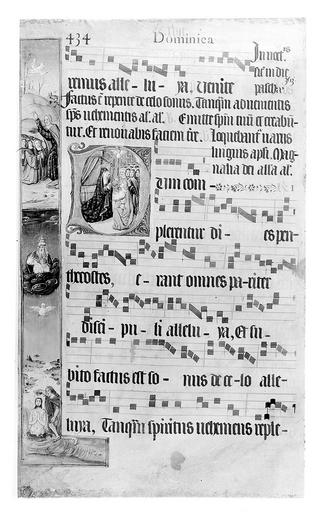 434 Dominica
In noct.
remus alle - lu - ya. Venite
Factus est repente de celo sonus. Tanquam advenientis
sps vehementis al'. al'. Emitte spm tuum et creabun-
tur. Et renovabis faciem terre. Loquebantur variis
linguis apli. Mag-
nalia dei alla al'.
Dum com -
plerentur di - es pen-
thecostes, e - rant omnes pa - riter
disci - pu - li allelu - ya, Et su -
bito factus est so - nus de ce - lo alle -
luya, Tanquam spiritus vehemens reple -